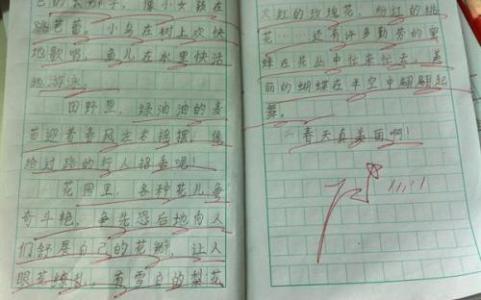 色的头胡子，像小女孩在
跳芭蕾，小鸟在树上欢快
地歌唱，鱼儿在水里快活
地游泳。
田野里，绿油油的麦
苗迎着春风左右摇摆，像
给过路的行人招着呢！
花园里，各种花儿争
奇斗艳，争先恐后地向人
们舒展自己的花瓣，让人
眼花缭乱，有雪白的梨花
火红的玫瑰花，粉红的桃
花……还有许多勤劳的蜜
蜂在花丛中忙来忙去，美
丽的蝴蝶在半空中翩翩起
舞。
春天真美丽啊！